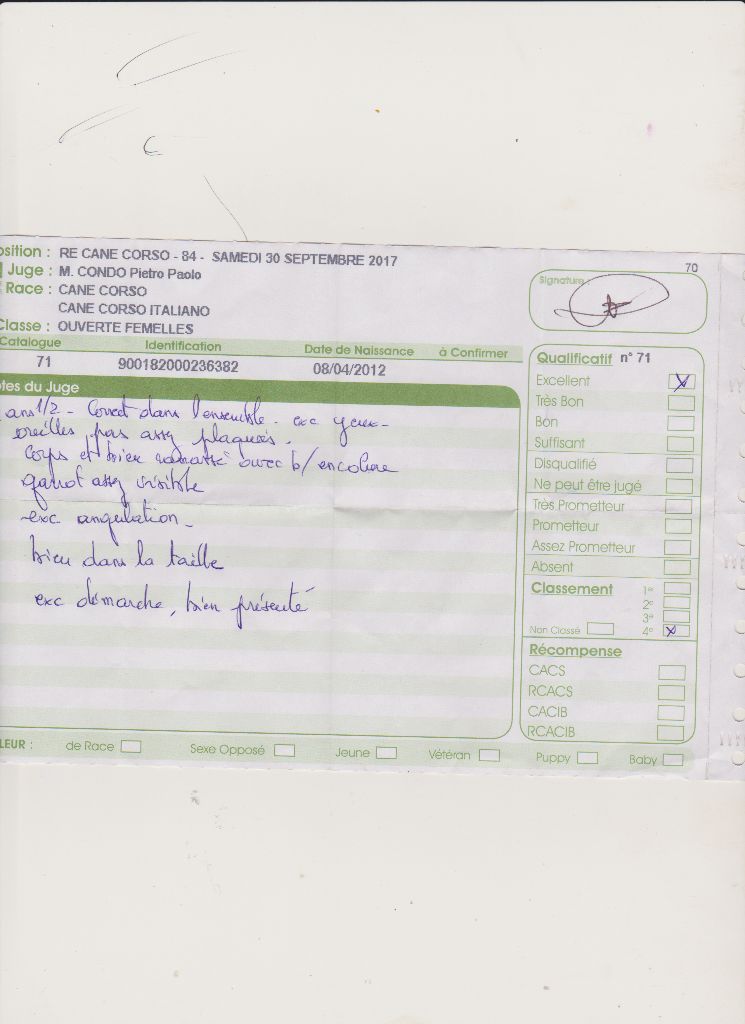 osition : RE CANE CORSO - 84 - SAMEDI 30 SEPTEMBRE 2017
70
Juge : M. CONDO Pietro Paolo
Race : CANE CORSO
CANE CORSO ITALIANO
Classe : OUVERTE FEMELLES
Signature
Catalogue Identification Date de Naissance à Confirmer
71 900182000236382 08/04/2012
otes du Juge
ans 1/2 - Correct dans l'ensemble. exc yeux -
oreilles pas assez plaquées.
Corps et bien ramassé avec b/encolure
garrot assez visible
exc angulation -
bien dans la taille
exc démarche, bien présenté
Qualificatif n° 71
Excellent X
Très Bon
Bon
Suffisant
Disqualifié
Ne peut être jugé
Très Prometteur
Prometteur
Assez Prometteur
Absent
Classement 1e
2e
3e
Non Classé 4e X
Récompense
CACS
RCACS
CACIB
RCACIB
LEUR : de Race Sexe Opposé Jeune Vétéran Puppy Baby